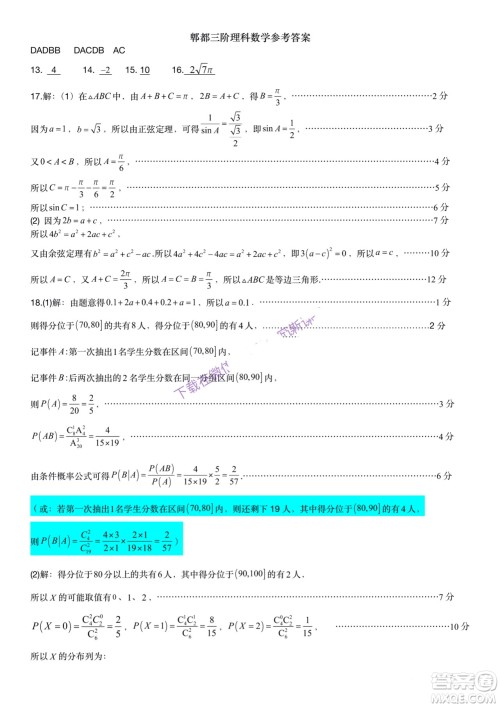 郫都三阶理科数学参考答案
DADBB DACDB AC
13. 4 14. -2 15. 10 16. 2√7π
17.解:(1)在△ABC中,由A+B+C=π,2B=A+C,得B=π/3,……2分
因为a=1,b=√3,所以由正弦定理,得1/sin A=√3/(√3/2),即sin A=1/2,……4分
又0<A<B,所以A=π/6,……5分
所以C=π-π/3-π/6=π/2,
所以sin C=1;……6分
(2) 因为2b=a+c,……7分
所以4b²=a²+2ac+c²,
又由余弦定理有b²=a²+c²-ac,所以4a²+4c²-4ac=a²+2ac+c²,即3(a-c)²=0,所以a=c,……9分
所以A=C,又A+C=2π/3,所以A=C=B=π/3,所以△ABC是等边三角形.……12分
18.(1)解:由题意得0.1+2a+0.4+0.2+a=1,所以a=0.1.
则得分位于(70,80]的共有8人,得分位于(80,90]的有4人.……2分
记事件A:第一次抽出1名学生分数在区间(70,80]内,
记事件B:后两次抽出的2名学生分数在同一分组区间(80,90]内,
则P(A)=8/20=2/5,
P(AB)=C₈¹A₄²/A₂₀³=4/(15×19)……4分
由条件概率公式可得P(B|A)=P(AB)/P(A)=4/(15×19)×5/2=2/57.……6分
(或:若第一次抽出1名学生分数在区间(70,80]内,则还剩下19人,其中得分位于(80,90]的有4人,
则P(B|A)=C₄²/C₁₉²=(4×3)/(2×1)×(2×1)/(19×18)=2/57)
(2)解:得分位于80分以上的共有6人,其中得分位于(90,100]的有2人,
所以X的可能取值有0、1、2,……7分
P(X=0)=C₄²C₂⁰/C₆²=2/5,P(X=1)=C₄¹C₂¹/C₆²=8/15,P(X=2)=C₄⁰C₂²/C₆²=1/15,……10分
所以X的分布列为: